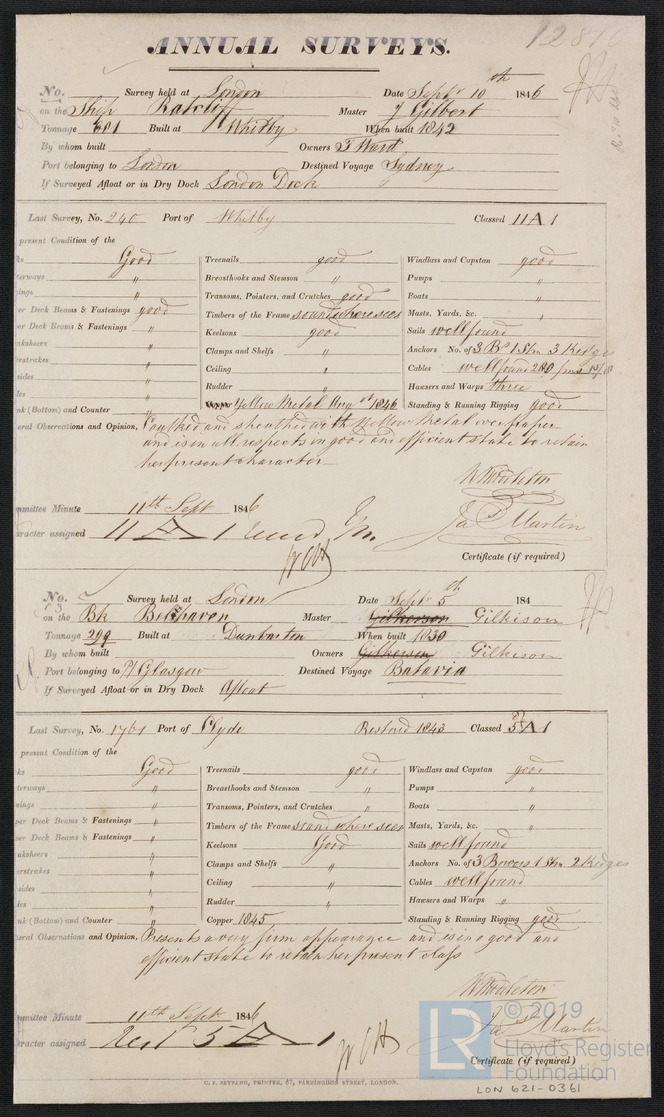 ANNUAL SURVEYS.
12810
No. Survey held at London Date Septr 10th 1846
on the Ship Ratcliff Master J Gilbert
Tonnage 601 Built at Whitby When built 1842
By whom built Owners T Ward
Port belonging to London Destined Voyage Sydney
If Surveyed Afloat or in Dry Dock London Dock
Last Survey, No. 240 Port of Whitby Classed 11 A 1
present Condition of the
Good Treenails good Windlass and Capstan good
terways " Breasthooks and Stemson " Pumps "
ings " Transoms, Pointers, and Crutches good Boats "
er Deck Beams & Fastenings good Timbers of the Frame sound where seen Masts, Yards, &c. "
er Deck Beams & Fastenings " Keelsons good Sails well found
nksheers " Clamps and Shelfs " Anchors No. of 3 Br 1 Stm 3 Kedges
erstrakes " Ceiling " Cables well found 280 fms
sides " Rudder " Hawsers and Warps three
nk (Bottom) and Counter " Yellow Metal 1846 Standing & Running Rigging good
eral Observations and Opinion, Caulked and sheathed with Yellow Metal over paper
and is in all respects in good and efficient state to retain
her present character
W Middleton
mmittee Minute 11th Sept 1846
racter assigned 11 A 1 Jas Martin
Certificate (if required)
No. Survey held at London Date Septr 5th 184
on the Bk Belhaven Master Gilkerson Gilkison
Tonnage 299 Built at Dunbarton When built 1830
By whom built Owners Gilkerson Gilkison
Port belonging to Glasgow Destined Voyage Batavia
If Surveyed Afloat or in Dry Dock Afloat
Last Survey, No. 1761 Port of Clyde Restored 1843 Classed 5 A 1
present Condition of the
ks Good Treenails good Windlass and Capstan good
terways " Breasthooks and Stemson " Pumps "
ings " Transoms, Pointers, and Crutches " Boats "
er Deck Beams & Fastenings " Timbers of the Frame sound where seen Masts, Yards, &c. "
er Deck Beams & Fastenings " Keelsons Good Sails well found
nksheers " Clamps and Shelfs " Anchors No. of 3 Bowers 1 Stm 2 Kedges
erstrakes " Ceiling " Cables well found
sides " Rudder " Hawsers and Warps "
nk (Bottom) and Counter " Copper 1845 Standing & Running Rigging good
eral Observations and Opinion, Presents a very firm appearance and is in a good and
efficient state to retain her present class
W Middleton
mmittee Minute 11th Sept 1846
racter assigned Rest 5 A 1 Jas Martin
Certificate (if required)
© 2019
LR Lloyd's Register
Foundation
C. F. SEYFANG, PRINTER, 57, FARRINGDON STREET, LONDON.
LON 621-0361